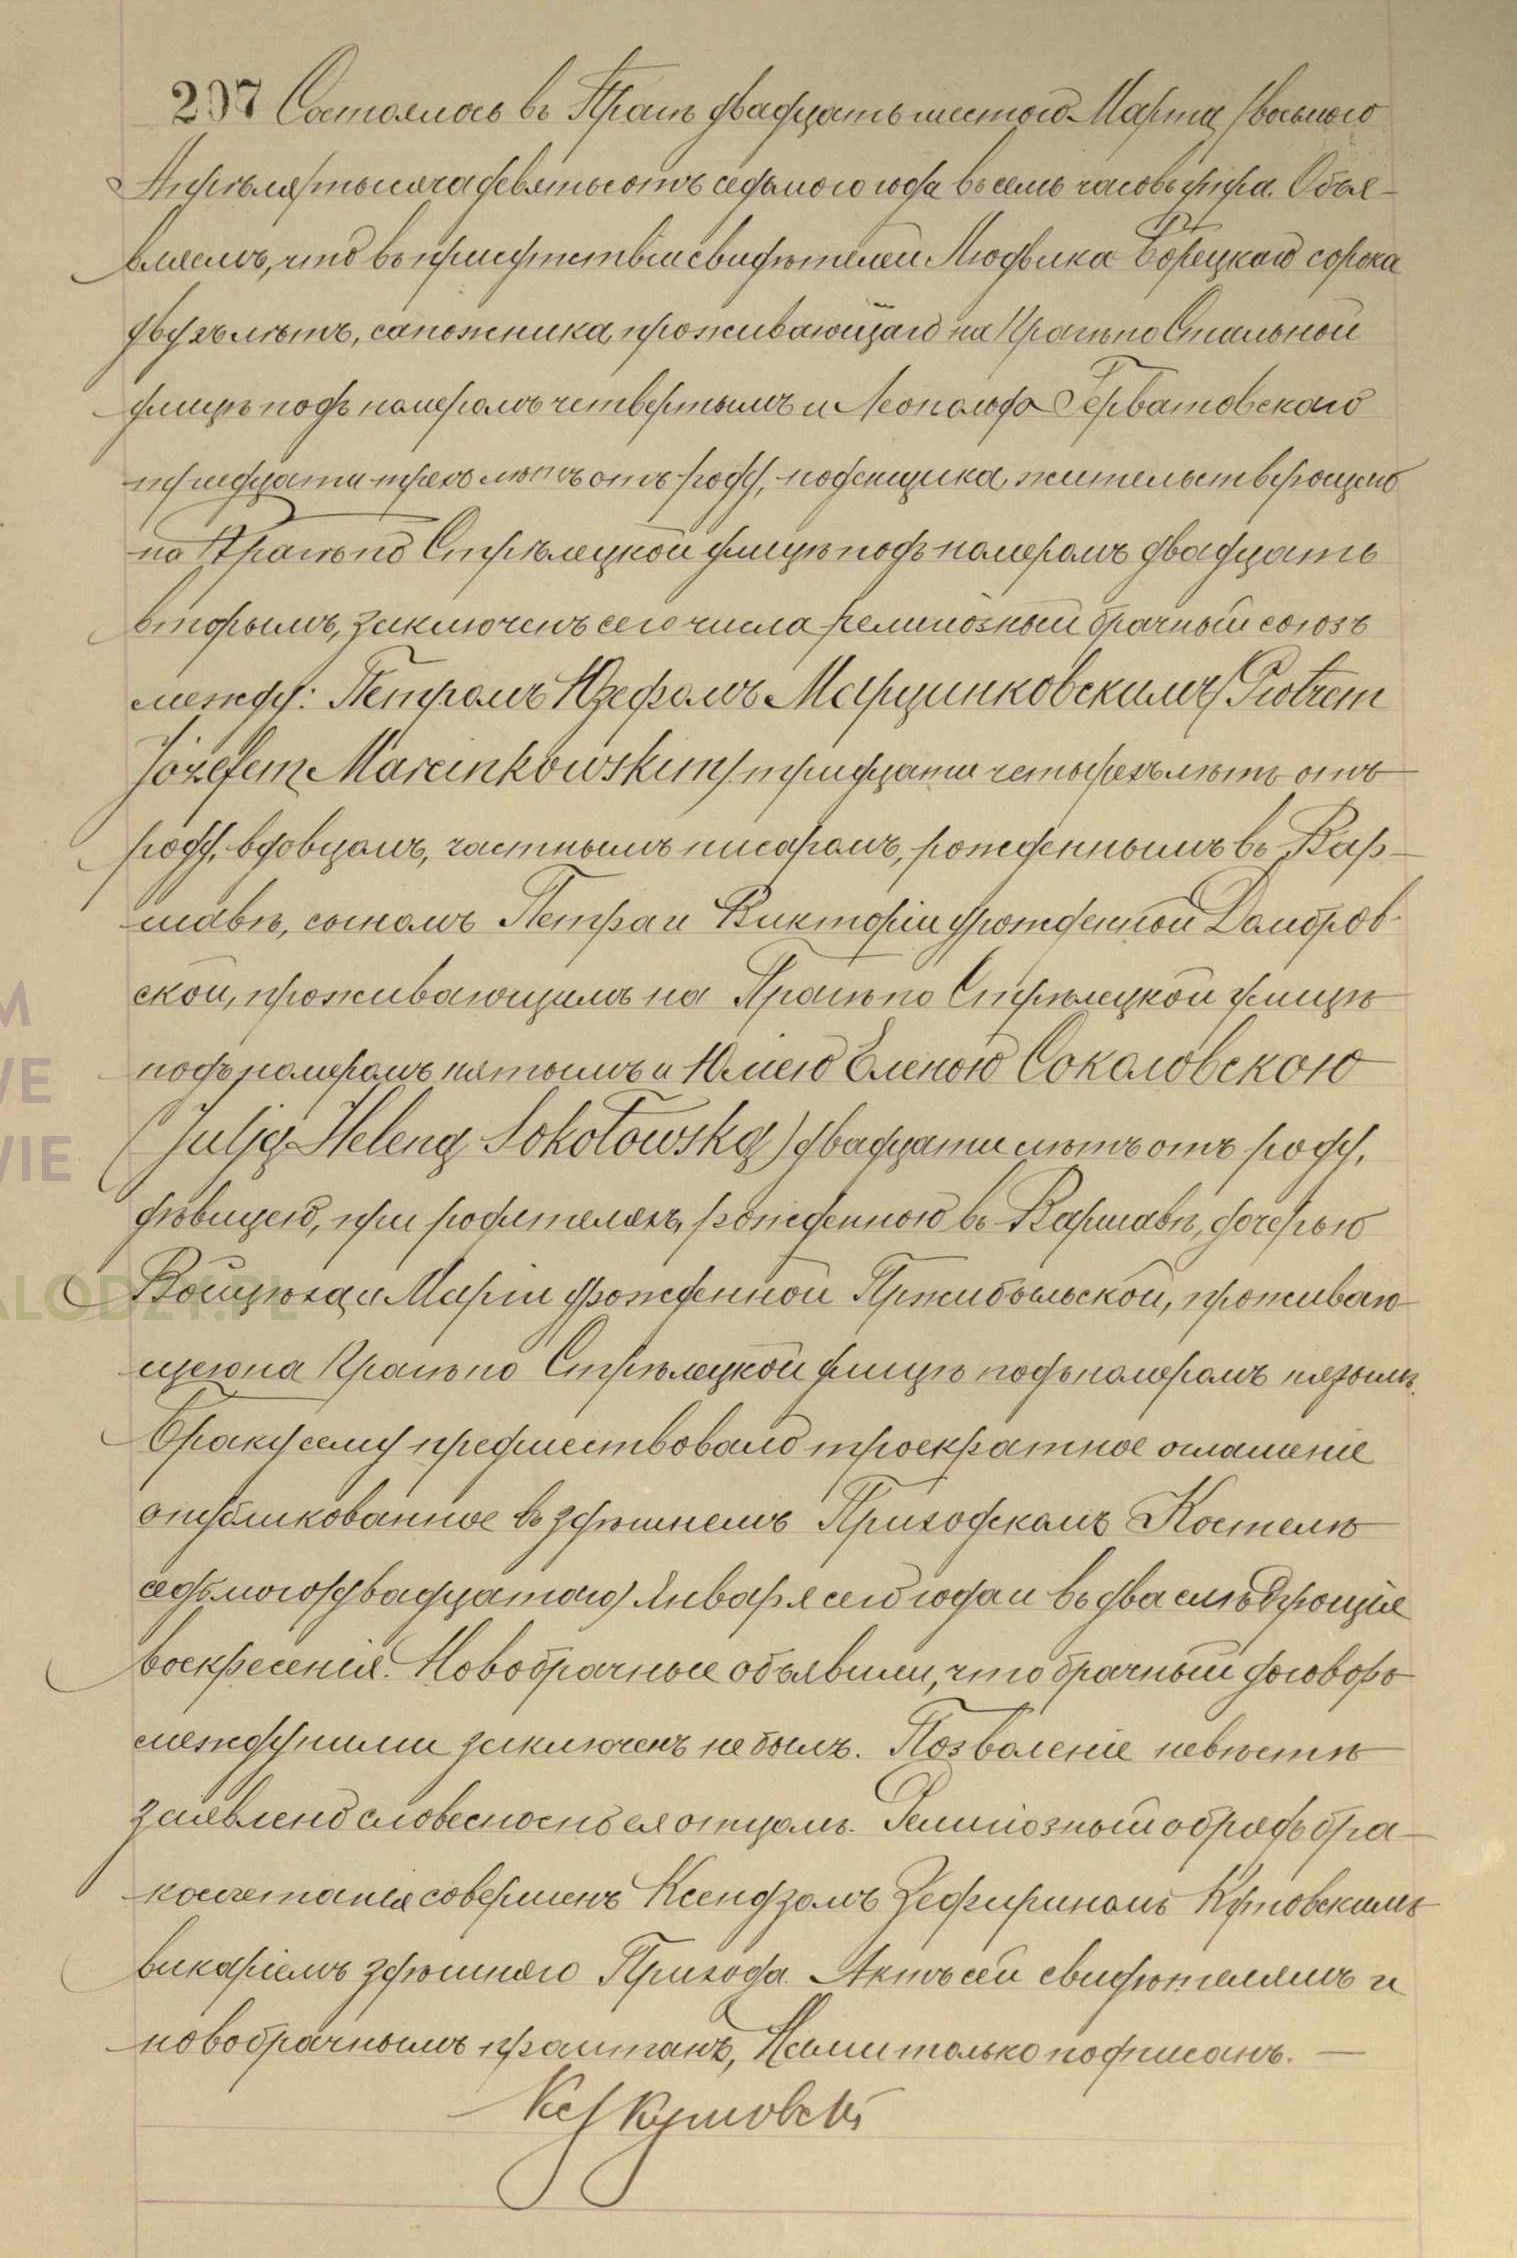 297 Состоялось въ Прагѣ двадцать шестого Марта /восьмого
Апрѣля/ тысяча девятьсотъ седьмого года въ семь часовъ утра. Объя-
вляемъ, что въ присутствіи свидѣтелей Людвика Борецкаго сорока
двухъ лѣтъ, сапожника, проживающаго на Прагѣ по Стальной
улицѣ подъ номеромъ четвертымъ и Леопольда Гербатовскаго
тридцати трехъ лѣтъ отъ роду, поденщика, жительствующаго
на Прагѣ по Стрѣлецкой улицѣ подъ номеромъ двадцать
вторымъ, заключенъ сего числа религіозный брачный союзъ
между: Петромъ Юзефомъ Марцинковскимъ /Piotrem
Józefem Marcinkowskim/ тридцати четырехъ лѣтъ отъ
роду, вдовцомъ, частнымъ писаромъ, рожденнымъ въ Вар-
шавѣ, сыномъ Петра и Викторіи урожденной Домбров-
ской, проживающимъ на Прагѣ по Стрѣлецкой улицѣ
подъ номеромъ пятымъ и Юліею Еленою Соколовскою
(Julją Heleną Sokołowską) двадцати лѣтъ отъ роду,
дѣвицею, при родителяхъ, рожденною въ Варшавѣ, дочерью
Войцѣха и Маріи урожденной Пржибыльской, проживаю-
щею на Прагѣ по Стрѣлецкой улицѣ подъ номеромъ пятымъ.
Браку сему предшествовало троекратное оглашеніе
опубликованное въ здѣшнемъ Приходскомъ Костелѣ
седьмого/двадцатаго/ Января сего года и въ два слѣдующіе
воскресенія. Новобрачные объявили, что брачный договоръ
между ними заключенъ не былъ. Позволеніе невѣстѣ
заявлено словесно ея отцомъ. Религіозный обрядъ бра-
косочетанія совершенъ Ксендзомъ Зефириномъ
викаріемъ здѣшняго Прихода. Актъ сей свидѣтелямъ и
новобрачнымъ прочитанъ, Нами только подписанъ. —